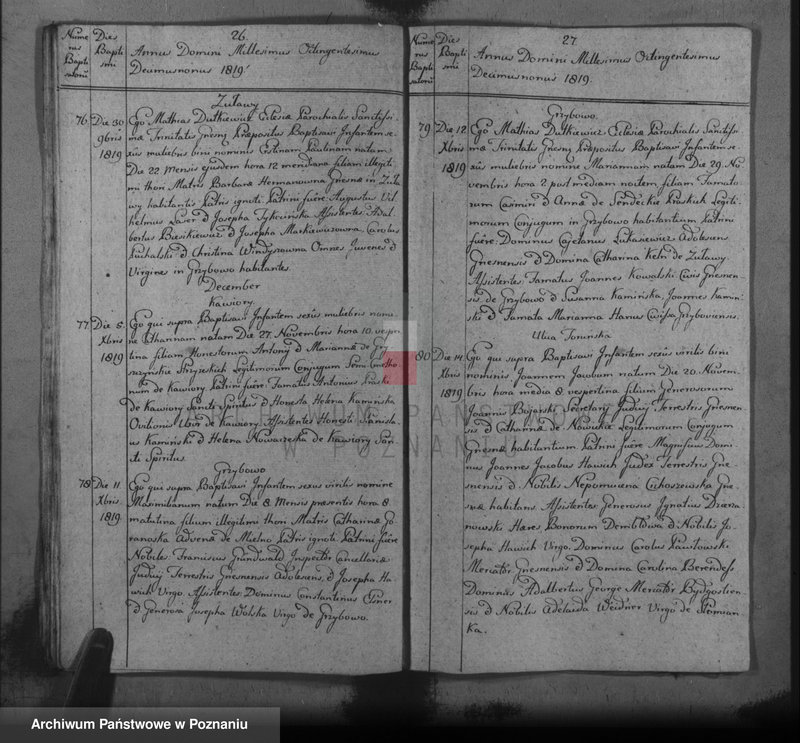 Nume
rus
Bapti
satorũ
Dies
Bapti
smi
26.
Annus Domini Millesimus Octingentesimus
Decimusnonus 1819.
Zuławy
76 Die 30
9bris
1819
Ego Mathias Dutkiewicz Eclesiæ Parochialis Sanctissi
mæ Trinitatis Gnesnæ Præpositus Baptisavi Infantem se
xûs muliebris bini nominis Paulinam natam
Die 22 Mensis ejusdem hora 12 meridiana filiam illegiti
mi thori Matris Barbaræ Hermanowna Gnesnæ in Zuła
wy habitantis Patris ignoti Patrini fuêre Augustus Vil
helmus et Josepha Assistentes Adal
bertus et Josepha Markiewiczowna Carolus
Suchalski et Christina Omnes Juvenes et
Virgines in Grzybowo habitantes.
December
Kawiory
77 Die 5.
Xbris
1819
Ego qui supra Baptisavi Infantem sexûs muliebris nomi
ne natam Die 27 Novembris hora 10 vesper
tina filiam Honestorum Antony et Mariannæ de
Legitimorum Conjugum
num de Kawiory Patrini fuêre Famatus Antonius
de Kawiory Sancti Spiritus et Honesta Helena Kamińska
Uxor de Kawiory. Assistentes Honesti Stanisla
us Kamiński et Helena de Kawiory San
cti Spiritus.
Grzybowo
78 Die 11.
Xbris
1819
Ego qui supra Baptisavi Infantem sexûs virilis nomine
Maximilianum natum Die 8 Mensis præsentis hora 8
matutina filium illegitimi thori Matris Catharinæ Go
ranoska Advenæ de Mielno Patris ignoti Patrini fuêre
Nobiles Franciscus Inspector Cancellariæ
Judicij Terrestris Gnesnensis Adolescens, et Josepha Ha
wich Virgo Assistentes Dominus Constantinus Elsner
et Generosa Josepha Wolska Virgo de Grzybowo.
Nume
rus
Bapti
satorũ
Dies
Bapti
smi
27.
Annus Domini Millesimus Octingentesimus
Decimusnonus 1819.
Grzybowo
79 Die 12
Xbris
1819
Ego Mathias Dutkiewicz Eclesiæ Parochialis Sanctissi
mæ Trinitatis Gnesnæ Præpositus Baptisavi Infantem se
xûs muliebris nomine Mariannam natam Die 29. No
vembris hora 2 post mediam noctem filiam Famato
rum Casimiri et Annæ de Legiti
morum Conjugum in Grzybowo habitantium Patrini
fuêre Dominus Cajetanus Łukasiewicz Adolescens
Gnesnensis et Domina Catharina de Zuławy.
Assistentes Famatus Joannes Kowalski Civis Gnesnen
sis de Grzybowo et Susanna Kamińska, Joannes Kamin
ski et Famata Marianna Civissa Grzyboviensis.
Ulica Toruńska
80 Die 14
Xbris
1819
Ego qui supra Baptisavi Infantem sexûs virilis bini
nominis Joannem Jacobum natum Die 20. Novem
bris hora media 8 vespertina filium Generosorum
Joannis Bojarski Secretarij Judicij Terrestris Gnesnen
sis et Catharinæ de Legitimorum Conjugum
Gnesnæ habitantium Patrini fuêre Magnificus Domi
nus Joannes Jacobus Hawich Judex Terrestris Gne
snensis et Nobilis Nepomucena Gne
snæ habitans Assistentes Generosus Ignatius
nowski Hæres Bonorum et Nobilis Jo
sepha Hawich Virgo Dominus Carolus Pawłowski
Mercator Gnesnensis et Domina Carolina
Dominus Adalbertus George Mercator Bydgostien
sis et Nobilis Adelaida Weidner Virgo de
ka.
ARCHIWUM PAŃSTWOWE
W POZNANIU
Archiwum Państwowe w Poznaniu